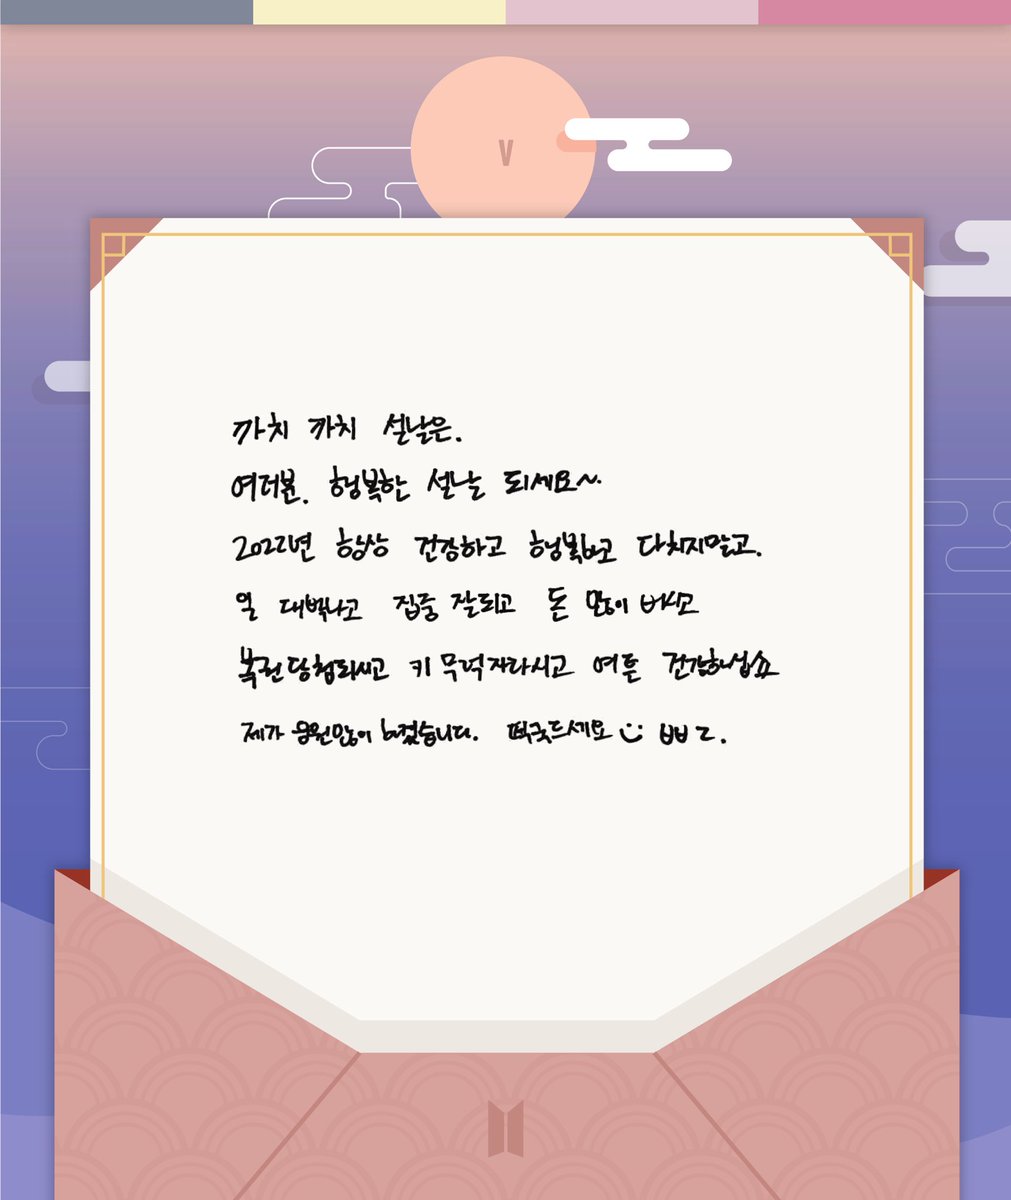 V
까치 까치 설날은.
여러분. 행복한 설날 되세요~
2022년 항상 건강하고 행복하고 다치지말고.
일 대박나고 집중 잘되고 돈 많이 버시고
복권당첨되시고 키 무럭자라시고 여튼 건강하십쇼
제가 응원많이 하겠습니다. 떡국드세요 ㅃㅃㄷ.